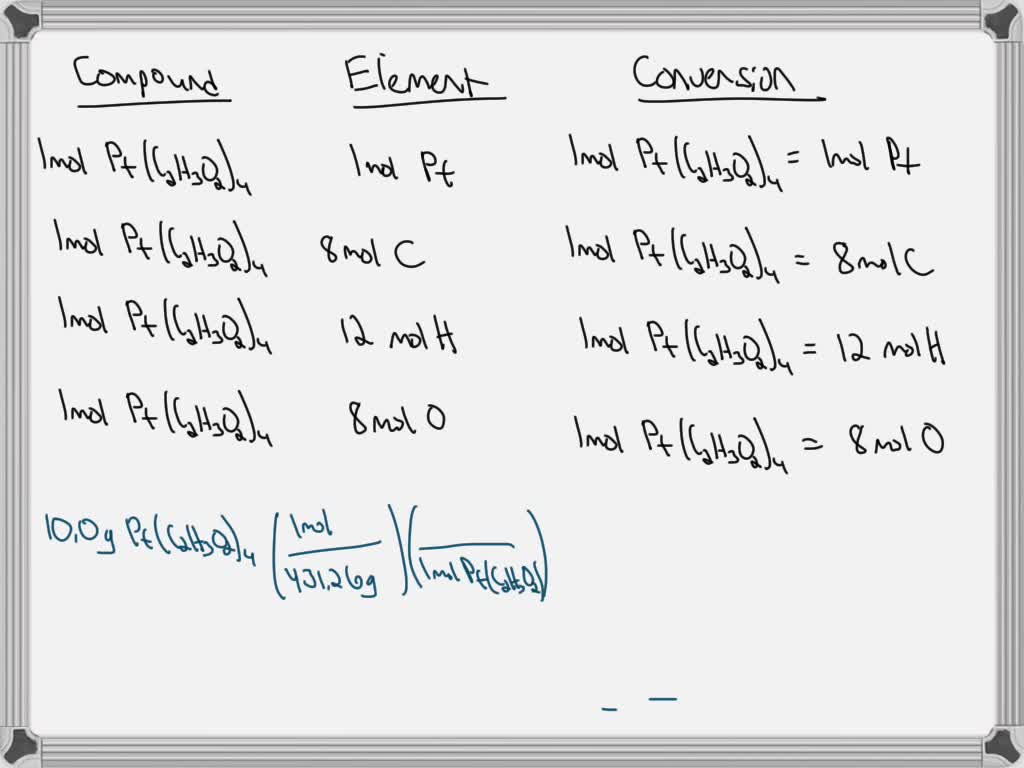 Compound Element Conversion
1mol Pt(C₂H₃O₂)₄ 1mol Pt 1mol Pt(C₂H₃O₂)₄ = 1mol Pt
1mol Pt(C₂H₃O₂)₄ 8mol C 1mol Pt(C₂H₃O₂)₄ = 8mol C
1mol Pt(C₂H₃O₂)₄ 12 mol H 1mol Pt(C₂H₃O₂)₄ = 12 mol H
1mol Pt(C₂H₃O₂)₄ 8mol O 1mol Pt(C₂H₃O₂)₄ = 8mol O
10.0g Pt(C₂H₃O₂)₄ (1mol / 431.26g)( / 1mol Pt(C₂H₃O₂))